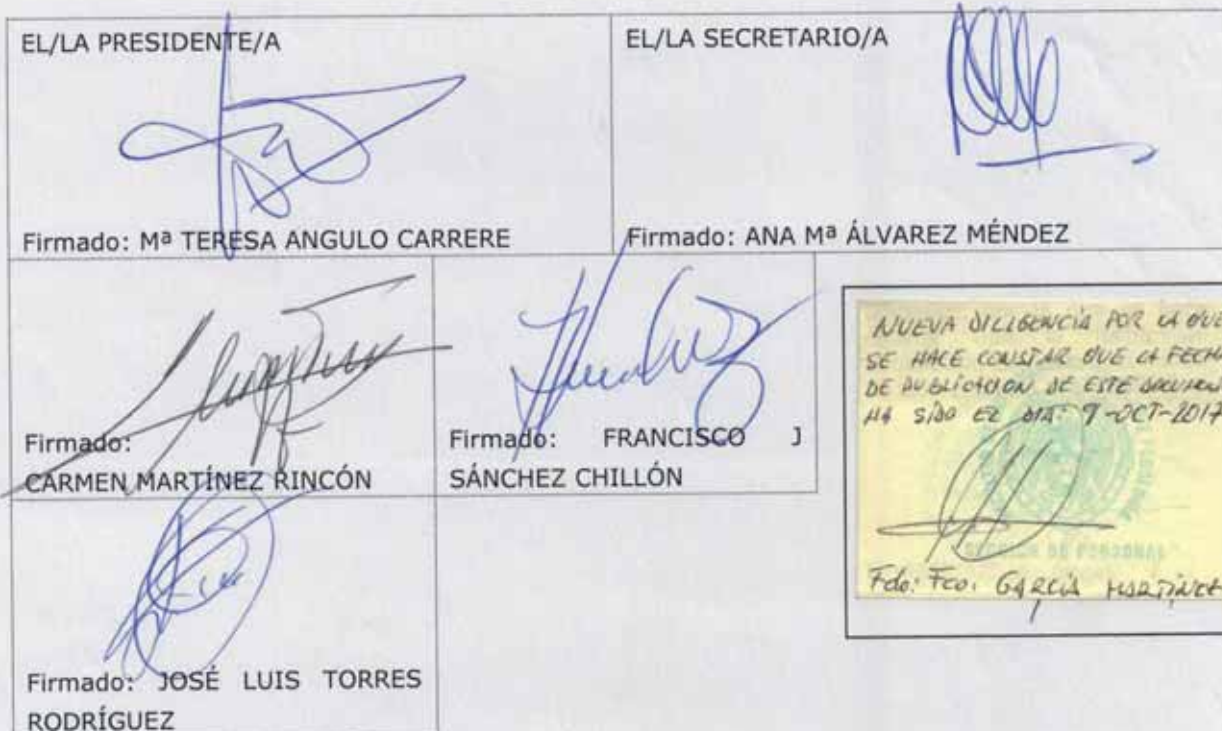 EL/LA PRESIDENTE/A
Firmado: Mª TERESA ANGULO CARRERE
EL/LA SECRETARIO/A
Firmado: ANA Mª ÁLVAREZ MÉNDEZ
Firmado:
CARMEN MARTÍNEZ RINCÓN
Firmado: FRANCISCO J
SÁNCHEZ CHILLÓN
NUEVA DILIGENCIA POR LA QUE
SE HACE CONSTAR QUE LA FECHA
DE PUBLICACION DE ESTE DOCUMENT
HA SIDO EL DIA: 9-OCT-2017
SECCIÓN DE PERSONAL
Fdo: Fco. GARCÍA MARTÍNEZ
Firmado: JOSÉ LUIS TORRES
RODRÍGUEZ